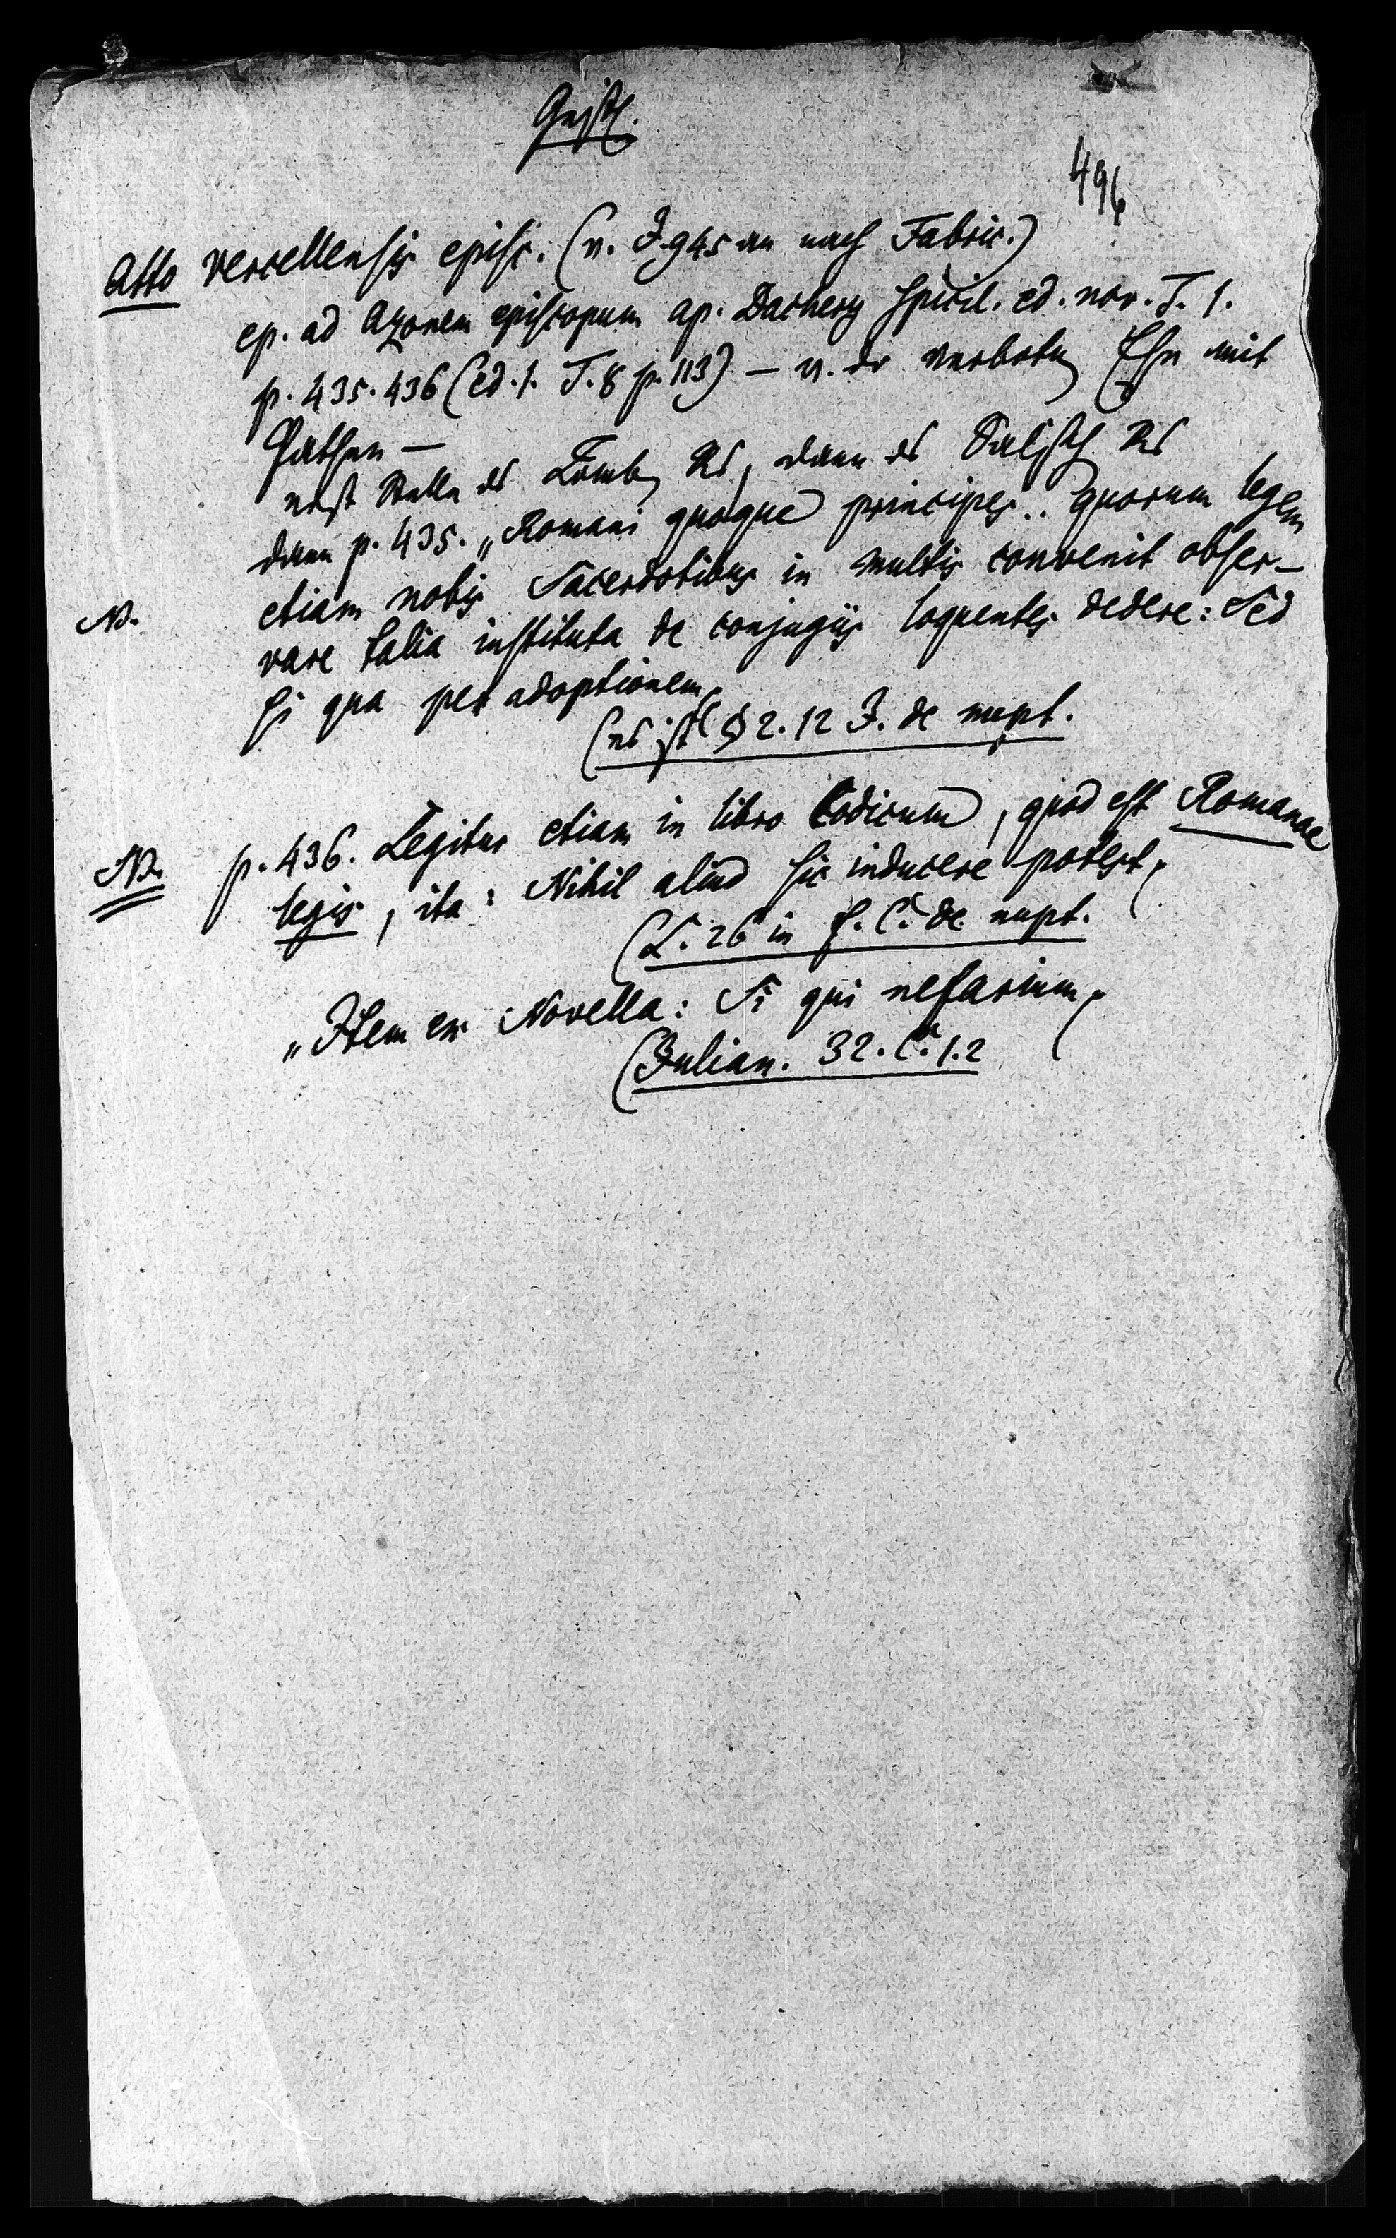 Geistl.
496
Atto vercellensis episc. (v. J. 945 an nach Fabric.)
ep. ad Azonem episcopum ap. Dachery spicil. ed. nov. T. 1.
p. 435. 436 (ed. 1. T. 8 p. 113) – v. der verboten Ehe mit
Pathen –
erst Stelle des Lomb. Rs, dann des Salisch Rs
dann p. 435. „Romani quoque principes .. quorum legem
etiam nobis Sacerdotibus in multis convenit obser-
NB.
vare talia instituta de conjugiis loquentes dedere: Sed
si qua per adoptionem
(es ist § 2. 12 J. de nupt.
NB. p. 436. Legitur etiam in libro Codicum, quod est Romanae
legis, ita: Nihil aliud sic inducere potest
(L. 26 in f. C. de nupt.
„Item ex Novella: Si qui nefarium
(Julian. 32. C. 1. 2